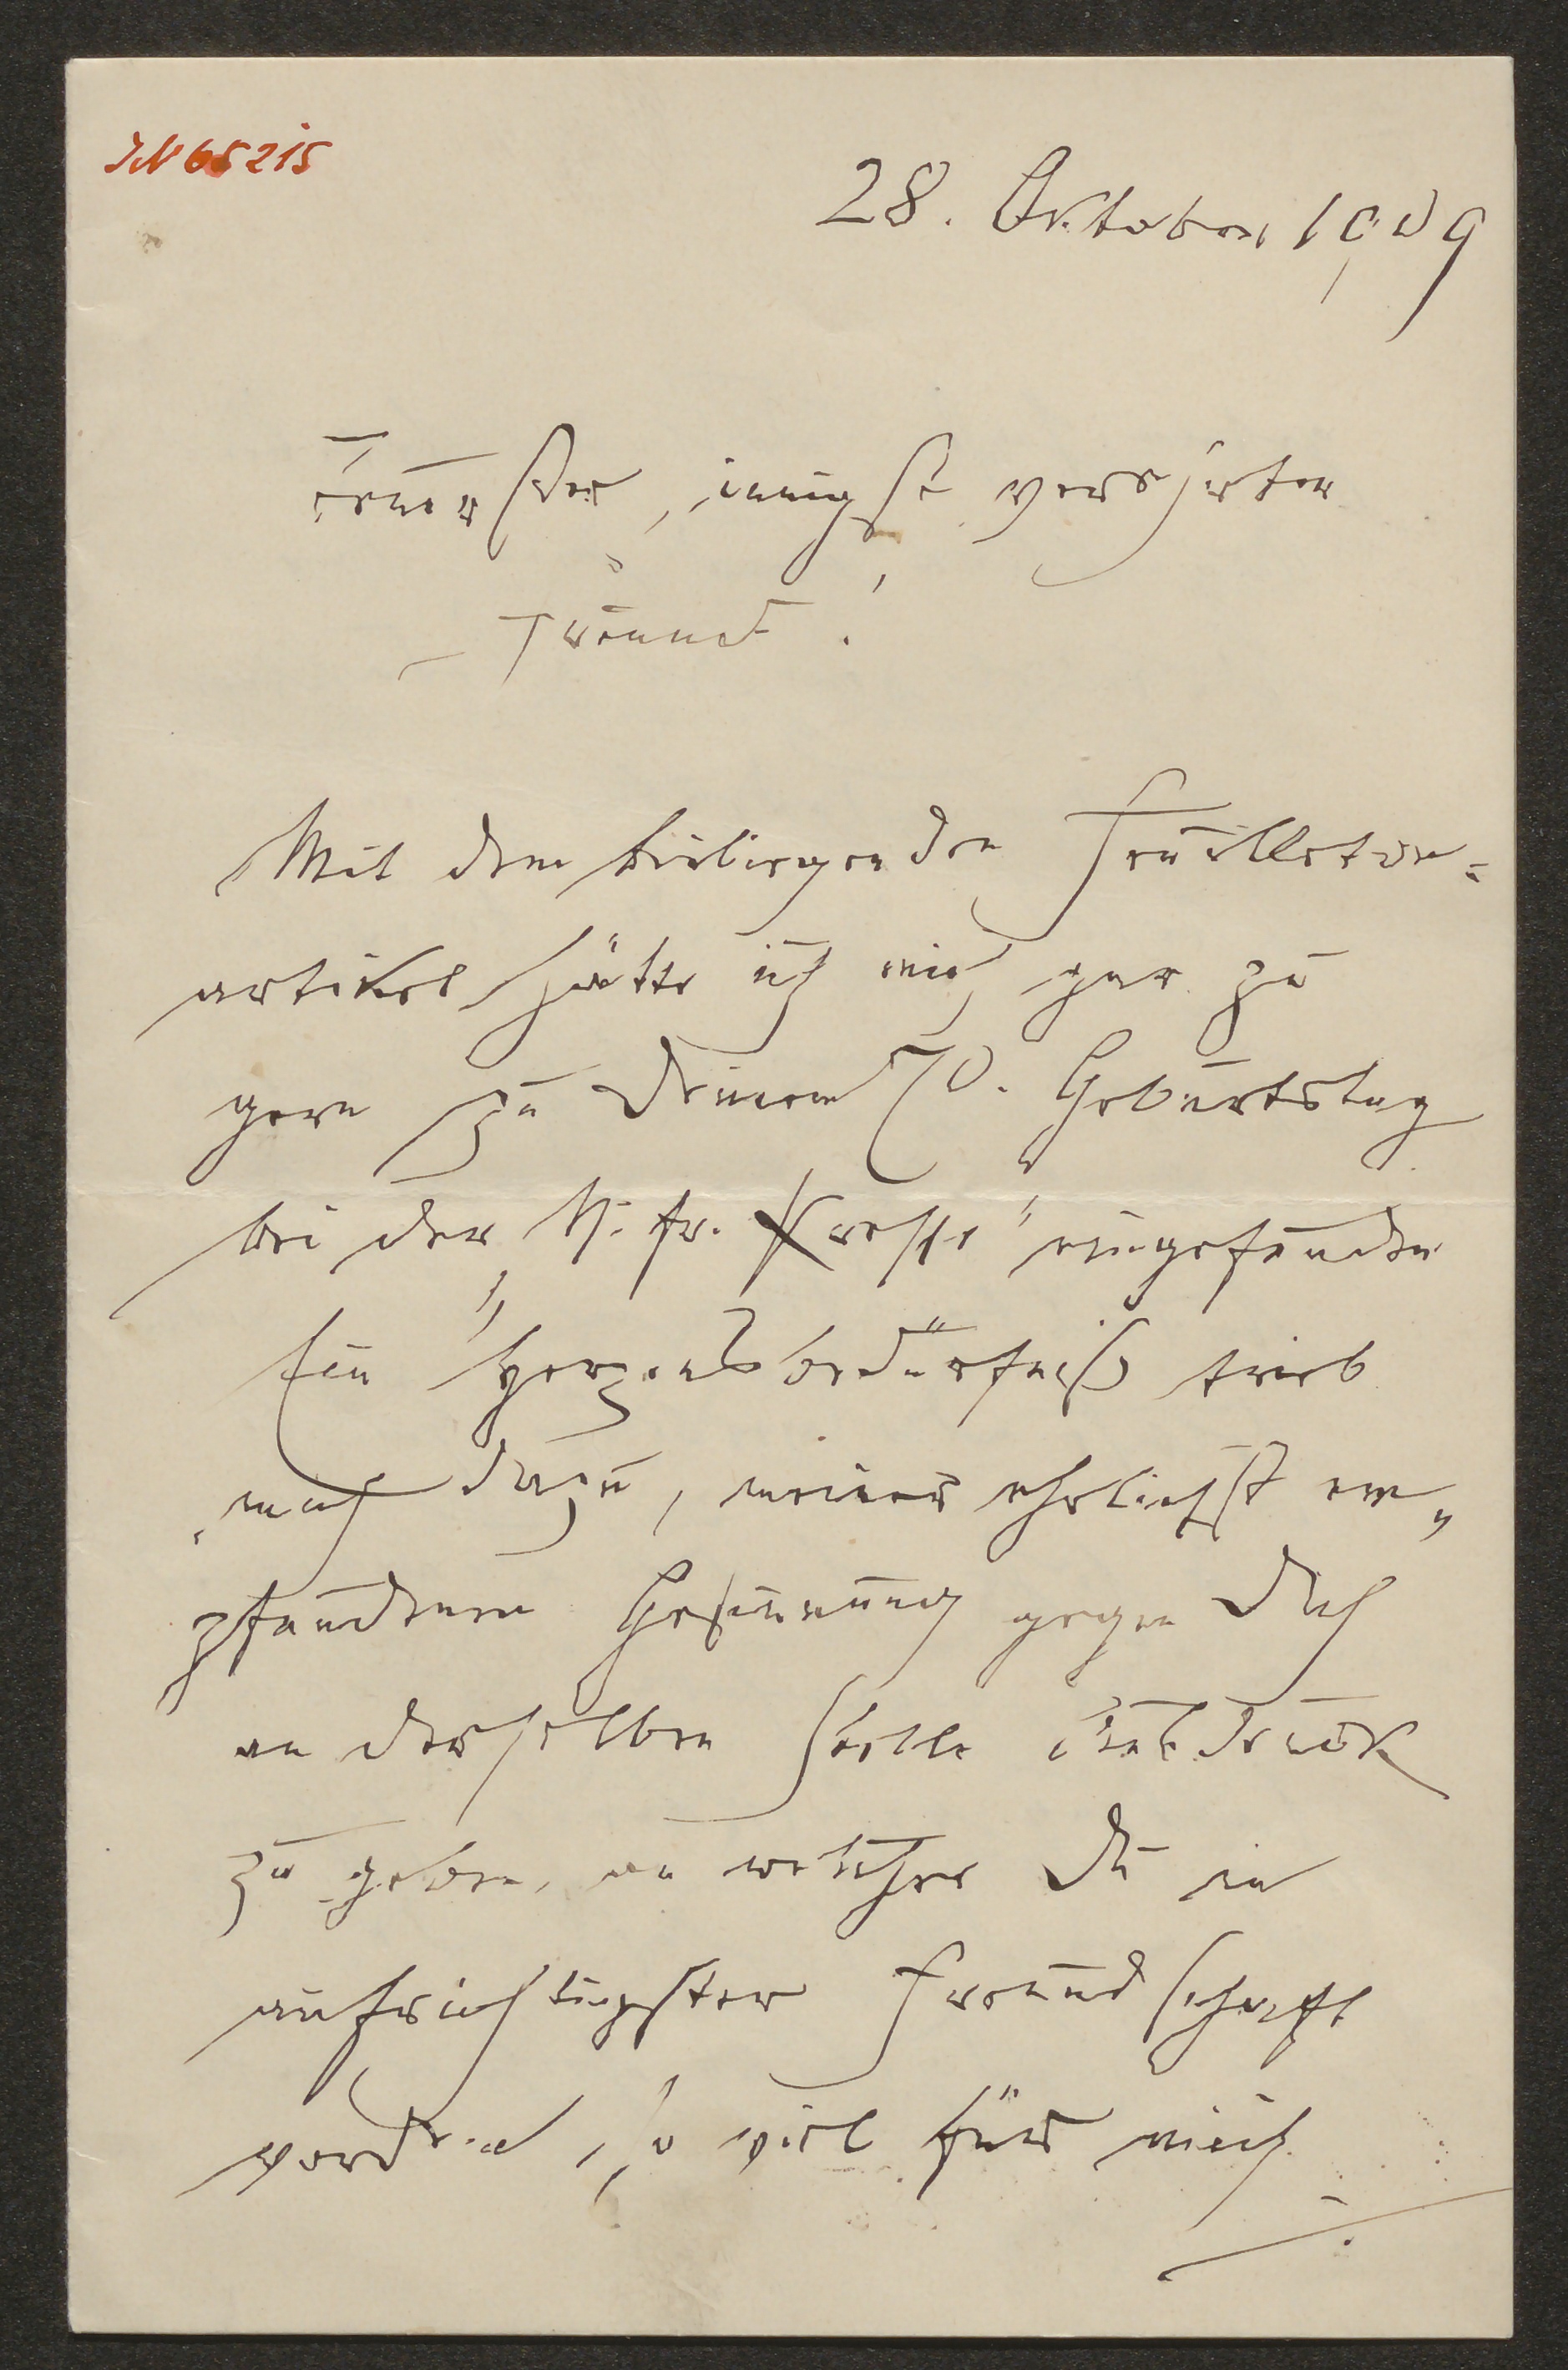 IN 65215
28. Oktober 1909
Teuerster, innigst verehrter
Freund!
Mit dem beiliegenden Feuilleton=
artikel hätte ich mich gar zu
gern zu Deinem 70. Geburtstag
bei der „N. fr. Presse" eingefunden
Ein Herzensbedürfniß trieb
mich dazu, meiner ehrlichst em„
pfundenen Gesinnung gegen Dich
an derselben Stelle Ausdruck
zu geben, an welcher Du in
aufrichtigster Freundschaft
, so viel für mich